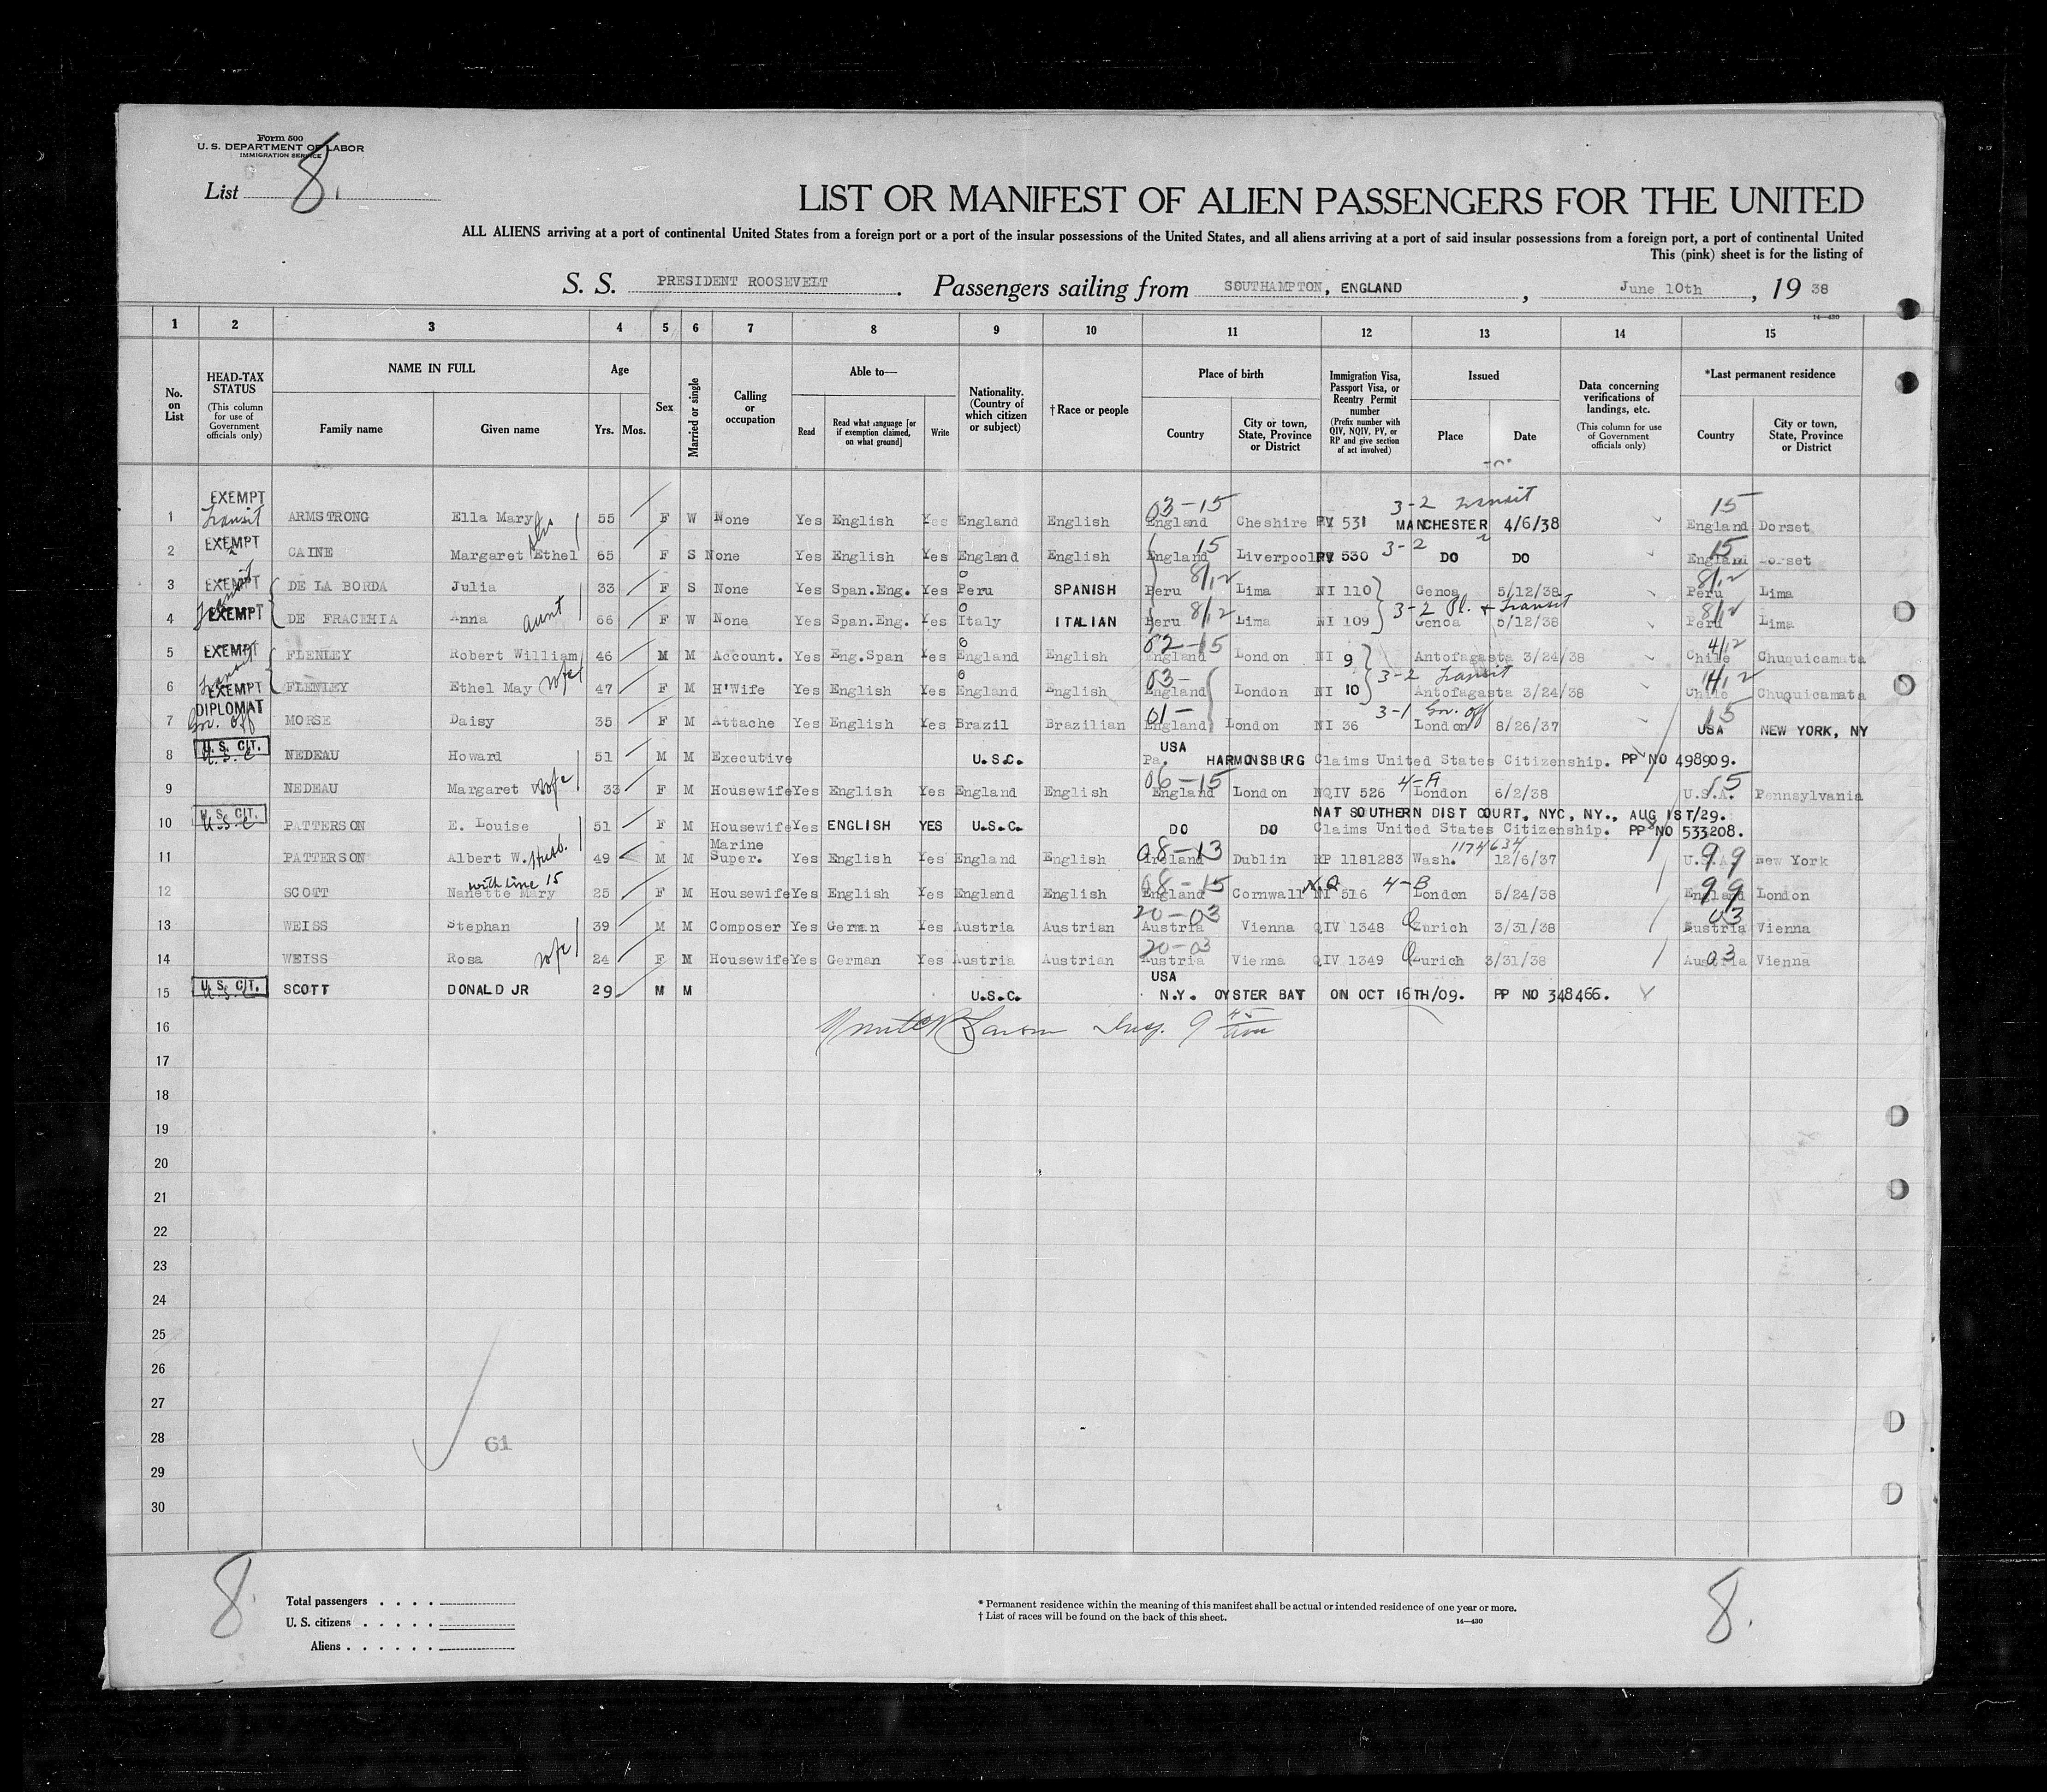 Form 500
U. S. DEPARTMENT OF LABOR
IMMIGRATION SERVICE
List 8.
LIST OR MANIFEST OF ALIEN PASSENGERS FOR THE UNITED
ALL ALIENS arriving at a port of continental United States from a foreign port or a port of the insular possessions of the United States, and all aliens arriving at a port of said insular possessions from a foreign port, a port of continental United
This (pink) sheet is for the listing of
S. S. PRESIDENT ROOSEVELT. Passengers sailing from SOUTHAMPTON, ENGLAND, June 10th, 19 38
14—430
1 2 3 4 5 6 7 8 9 10 11 12 13 14 15
No. on List
HEAD-TAX STATUS (This column for use of Government officials only)
NAME IN FULL
Family name
Given name
Age
Yrs. Mos.
Sex
Married or single
Calling or occupation
Able to—
Read
Read what language [or if exemption claimed, on what ground]
Write
Nationality. (Country of which citizen or subject)
† Race or people
Place of birth
Country
City or town, State, Province or District
Immigration Visa, Passport Visa, or Reentry Permit number (Prefix number with QIV, NQIV, PV, or RP and give section of act involved)
Issued
Place
Date
Data concerning verifications of landings, etc. (This column for use of Government officials only)
*Last permanent residence
Country
City or town, State, Province or District
EXEMPT 03-15 3-2 Transit 15
1 Transit ARMSTRONG Ella Mary 55 F W None Yes English Yes England English England Cheshire PV 531 MANCHESTER 4/6/38 England Dorset
EXEMPT 15 3-2 15
2 CAINE Margaret Ethel 65 F S None Yes English Yes England English England Liverpool PV 530 DO DO England Dorset
3 EXEMPT DE LA BORDA Julia 33 F S None Yes Span.Eng. Yes Peru SPANISH Peru 8/12 Lima NI 110 Genoa 5/12/38 8/12 Peru Lima
Transit aunt 3-2 Pl. + Transit
4 EXEMPT DE FRACEHIA Anna 66 F W None Yes Span.Eng. Yes Italy ITALIAN Peru 8/12 Lima NI 109 Genoa 5/12/38 8/12 Peru Lima
02-15 4/12
5 EXEMPT FLENLEY Robert William 46 M M Account. Yes Eng.Span Yes England English England London NI 9 Antofagasta 3/24/38 Chile Chuquicamata
Transit wife 03- 3-2 Transit 4/12
6 EXEMPT FLENLEY Ethel May 47 F M H'Wife Yes English Yes England English England London NI 10 Antofagasta 3/24/38 Chile Chuquicamata
DIPLOMAT 01- 3-1 Gov. off 15
7 Gov. off MORSE Daisy 35 F M Attache Yes English Yes Brazil Brazilian England London NI 36 London 8/26/37 USA NEW YORK, NY
U. S. CIT. USA
8 U.S.C NEDEAU Howard 51 M M Executive U.S.C. Pa. HARMONSBURG Claims United States Citizenship. PP NO 498909.
wife 06-15 4-A 15
9 NEDEAU Margaret 33 F M Housewife Yes English Yes England English England London NQIV 526 London 6/2/38 U.S.A. Pennsylvania
U. S. CIT. NAT SOUTHERN DIST COURT, NYC, NY., AUG 1ST/29.
10 U.S.C PATTERSON E. Louise 51 F M Housewife Yes ENGLISH YES U.S.C. DO DO Claims United States Citizenship. PP NO 533208.
Husb. Marine 08-13 1174634 99
11 PATTERSON Albert W. 49 M M Super. Yes English Yes England English Ireland Dublin RP 1181283 Wash. 12/6/37 U.S.A. New York
with line 15 08-15 N.Q 4-B 99
12 SCOTT Nanette Mary 25 F M Housewife Yes English Yes England English England Cornwall NI 516 London 5/24/38 England London
20-03 03
13 WEISS Stephan 39 M M Composer Yes German Yes Austria Austrian Austria Vienna QIV 1348 Zurich 3/31/38 Austria Vienna
wife 20-03 03
14 WEISS Rosa 24 F M Housewife Yes German Yes Austria Austrian Austria Vienna QIV 1349 Zurich 3/31/38 Austria Vienna
U. S. CIT. USA
15 U.S.C SCOTT DONALD JR 29 M M U.S.C. N.Y. OYSTER BAY ON OCT 16TH/09. PP NO 348466.
16 Insp. 9
17
18
19
20
21
22
23
24
25
26
27
28 61
29
30
8. 8.
Total passengers
U. S. citizens
Aliens
* Permanent residence within the meaning of this manifest shall be actual or intended residence of one year or more.
† List of races will be found on the back of this sheet.
14—430